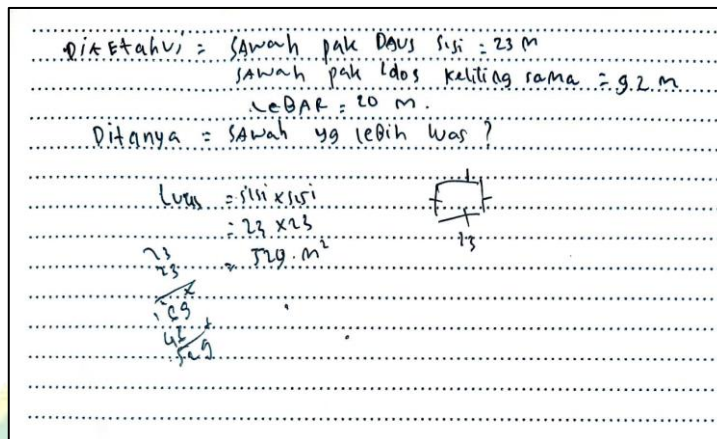 Diketahui = Sawah pak Daus sisi = 23 m
Sawah pak Idos keliling sama = 92 m
Lebar = 20 m.
Ditanya = Sawah yg lebih luas ?
Luas = sisi x sisi
= 23 x 23
23
= 529 m²
23
23
x
69
+
529